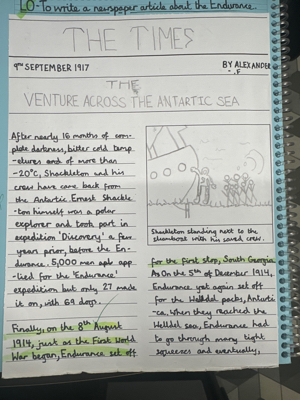 LO-To write a newspaper article about the Endurance.
THE TIMES
9TH SEPTEMBER 1917
BY ALEXANDER
-.F
THE
VENTURE ACROSS THE ANTARTIC SEA
After nearly 16 months of com-
plete darkness, bitter cold temp-
-etures and of more than
-20°C, Shackleton and his
crew have come back from
the Antartic. Ernest Shackle
-ton himself was a polar
explorer and took part in
expedition 'Discovery' a few
years prior, before the En-
durance. 5,000 men app
-lied for the 'Endurance'
expedition but only 27 made
it on, with 69 dogs.
Finally, on the 8th August
1914, just as the First World
War began, Endurance set off
Shackleton standing next to the
steamboat with his saved crew.
for the first stop, South Georgia.
As On the 5th of December 1914,
Endurance yet again set off
for the Welldel packs, Antarti
-ca. When they reached the
Welldel sea, Endurance had
to go through many tight
squeezes and eventually,